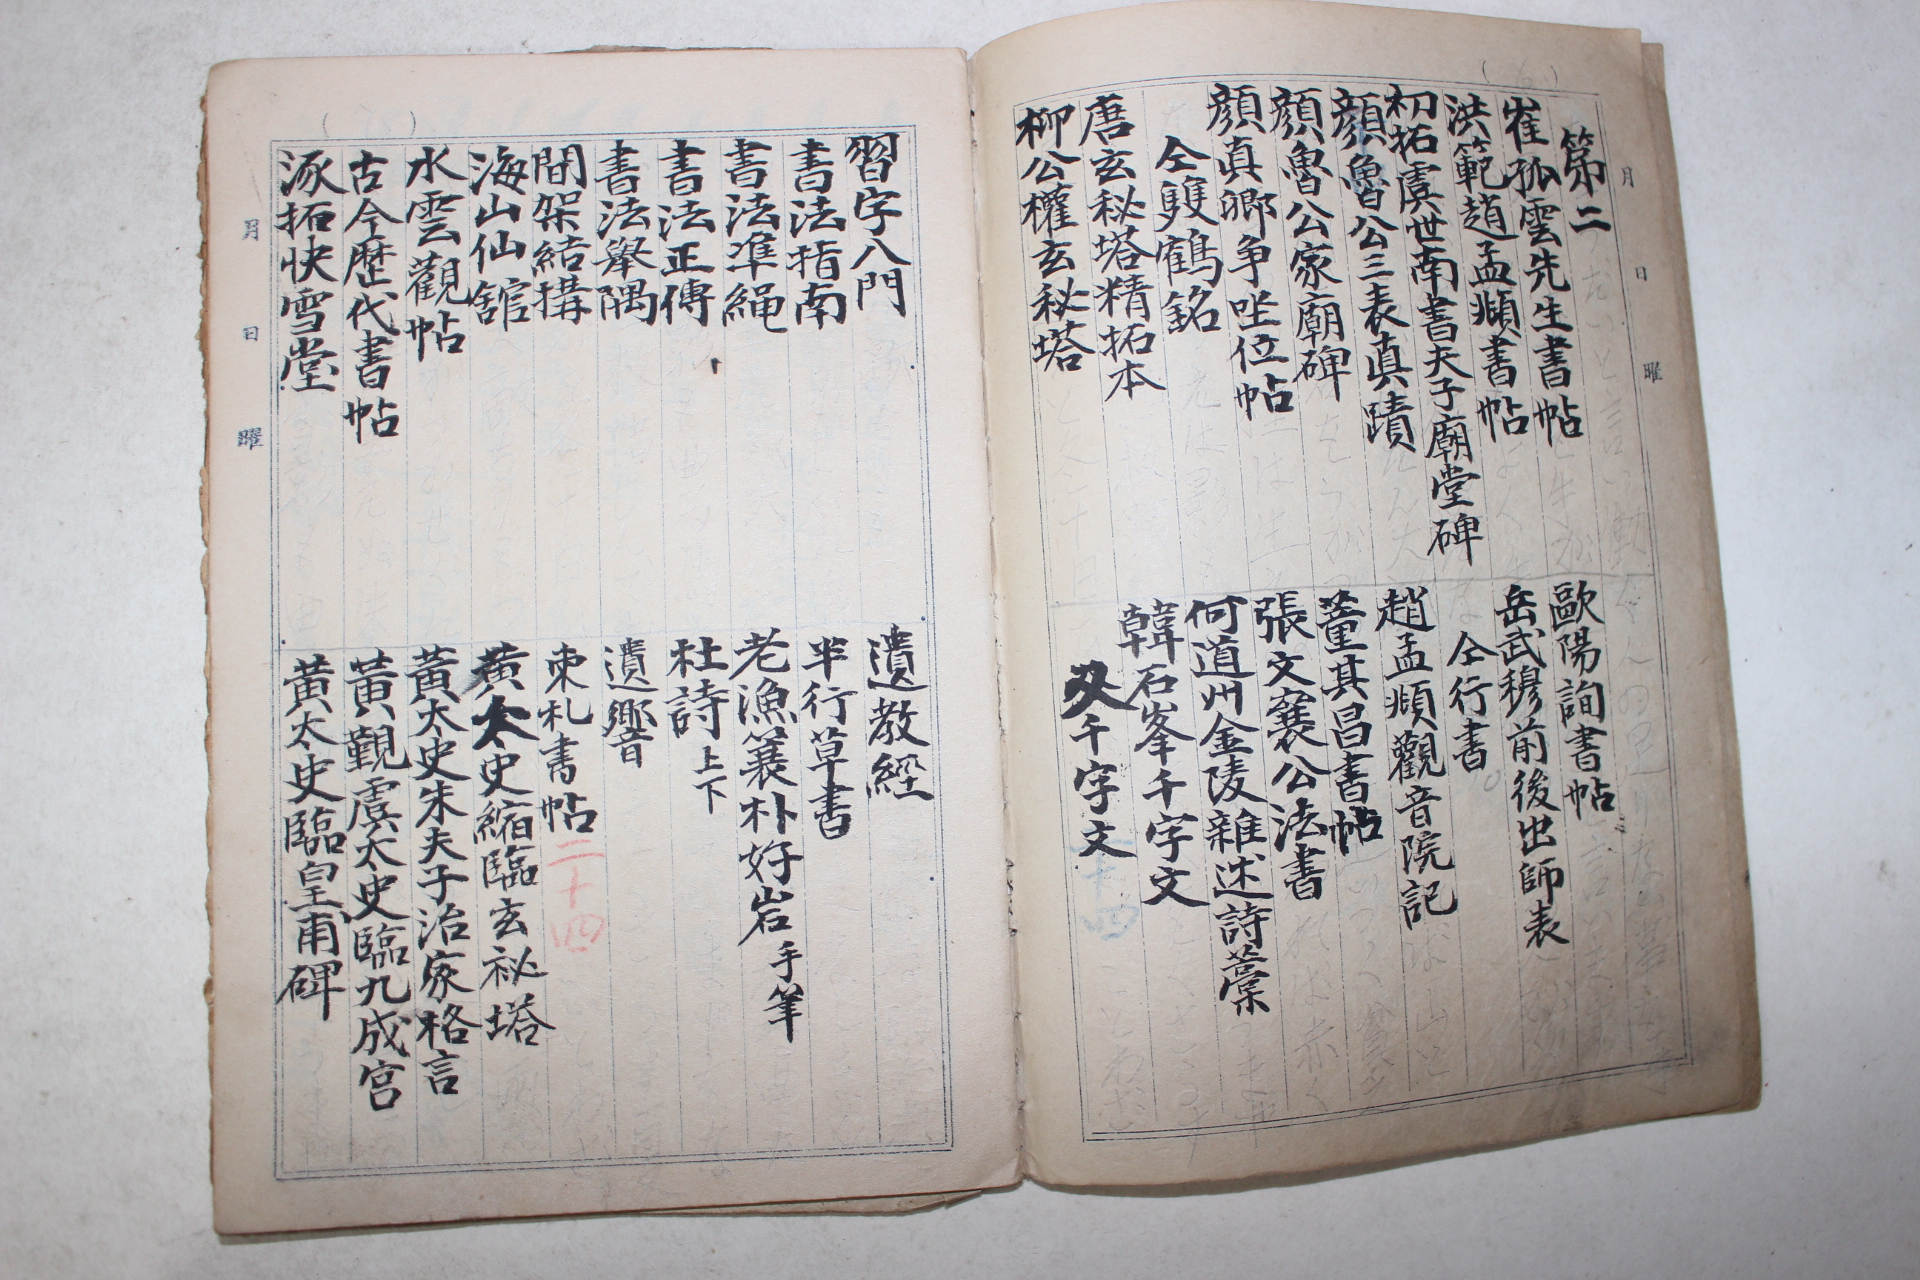 月 日 曜
第二
崔孤雲先生書帖
洪範趙孟頫書帖
初拓虞世南書夫子廟堂碑
顔魯公三表真蹟
顔魯公家廟碑
顔真卿争坐位帖
仝雙鶴銘
唐玄秘塔精拓本
柳公權玄秘塔
歐陽詢書帖
岳武穆前後出師表
仝行書
趙孟頫觀音院記
董其昌書帖
張文襄公法書
何道州金陵雜述詩藁
韓石峯千字文
又千字文
習字八門
書法指南
書法準繩
書法正傳
書法舉隅
間架結構
海山仙館
水雲觀帖
古今歴代書帖
涿拓快雪堂
遺教經
半行草書
老漁簑朴好岩手筆
杜詩上下
遺響
束札書帖 二十四
黄太史縮臨玄祕塔
黄太史朱夫子治家格言
黄觀虞太史臨九成宮
黄太史臨皇甫碑
月 日 曜